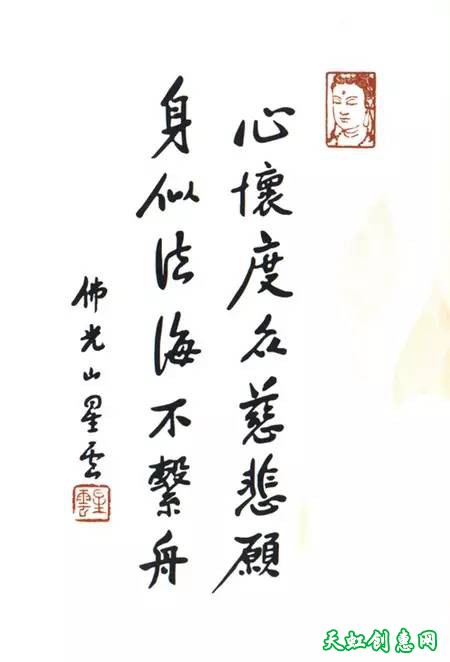 心懷度众慈悲願
身似法海不繫舟
佛光山星雲
星雲
天虹创意网